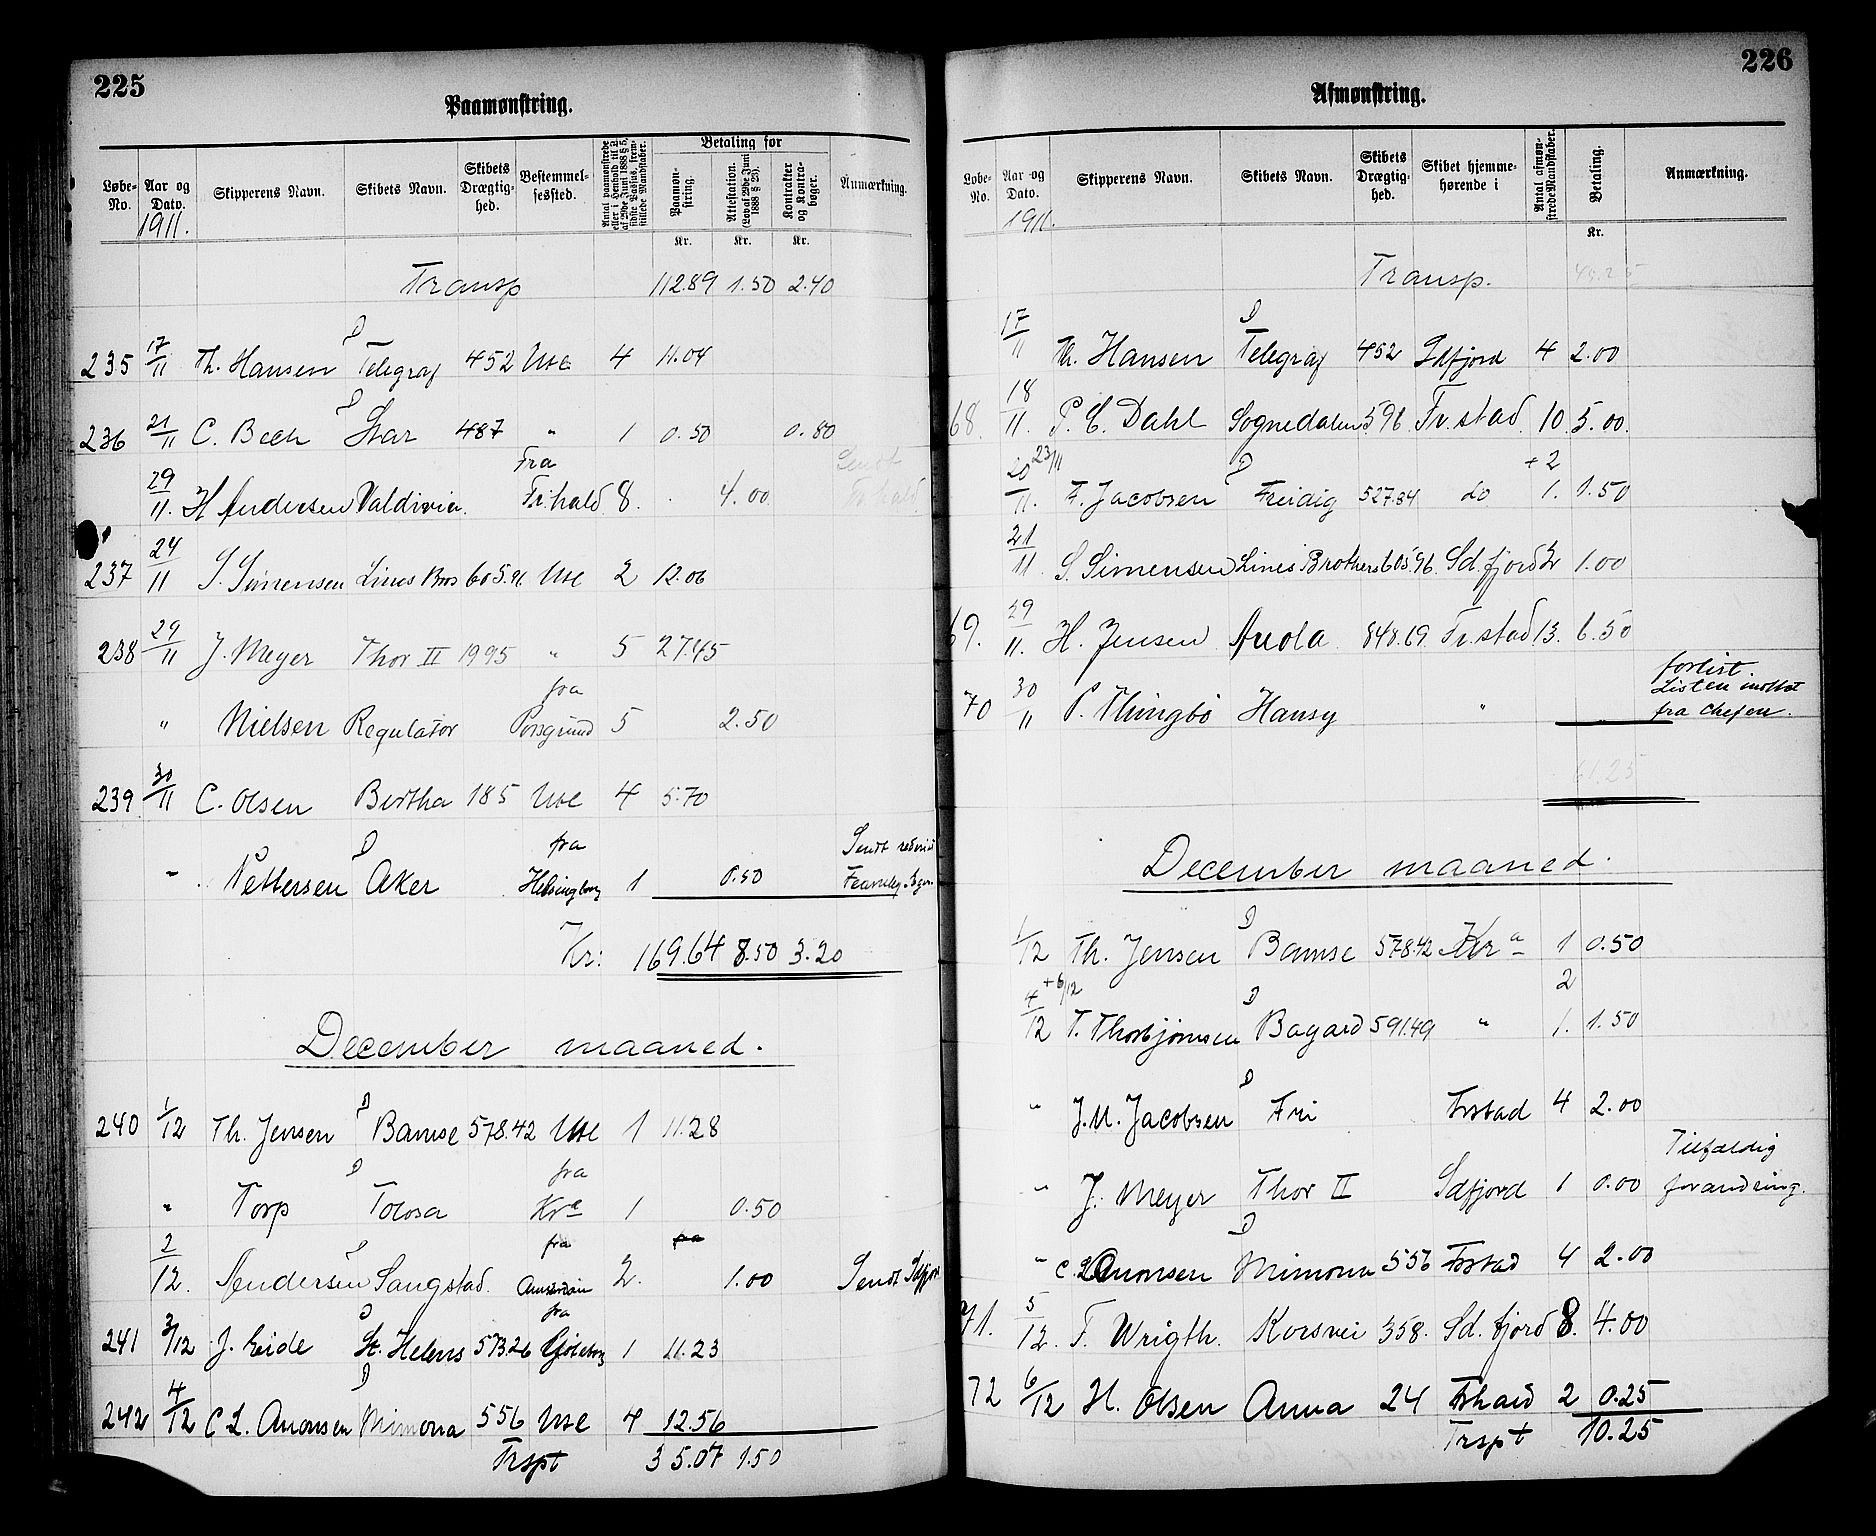 225
Paamønstring.
Løbe-No. Aar og Dato. Skipperens Navn. Skibets Navn. Skibets Drægtighed. Bestemmelsessted. Betaling for Paamønstring. Attestation. (Lov af 29de Juni 1888 § 23). Kontrakter og Kontrabøger. Anmærkning.
1911.
Kr. Kr. Kr.
Transp 112.89 1.50 2.40
235 17/11 Th. Hansen D Telegraf 452 Ute 4 11.04
236 21/11 C. Bech D Star 487 " 1 0.50 0.80
29/11. H Andersen Valdivia. Fra Frhald 8. 4.00 Sendt Frhald
237 24/11 S. Simensen Lines Bros 605.91 Ute 2 12.06
238 29/11 J. Meyer Thor II 1995 " 5 27.45
" Nielsen Regulator fra Porsgrund 5 2.50
239 30/11 C. Olsen Bertha 185 Ute 4 5.70
" Pettersen D Aker fra Helsingborg 1 0.50 Sendt
Kr: 169.64 8.50 3.20
December maaned.
240 1/12 Th. Jensen D Bamse 578.42 Ute 1 11.28
" Torp D Tolosa fra Kra 1 0.50
2/12. Andersen Sangstad. fra 2. 1.00 Sendt Sdfjord
241 3/12 J. Eide D St. Helens 573.26 fra Gjøteborg 1 11.23
242 4/12 C L. Amonsen D Mimona 556 Ute 4 12.56
Trspt 35.07 1.50
226
Afmønstring.
Løbe-No. Aar og Dato. Skipperens Navn. Skibets Navn. Skibets Drægtighed. Skibet hjemmehørende i Antal afmønstrede Mandskaber. Betaling. Anmærkning.
1911.
Kr.
Transp. 45.25
17/11 Th. Hansen D Telegraf 452 Sdfjord 4 2.00
68. 18/11. P. C. Dahl Sognedalen 596 Fr.stad 10 5.00.
20/11. 23/11 F. Jacobsen D Freidig 527.84 do + 2 1. 1.50
21/11 S. Simensen Lines Brothers 605.96 Sd.fjord 2 1.00
69. 29/11. H. Jensen Aeola 848.69 Fr.stad 13. 6.50
70 30/11 P. Thingbö Hansy " forlist. Listen modtat fra chefen.
61.25
December maaned.
1/12 Th. Jensen D Bamse 578.42 Kra 1 0.50
4/12 + 6/12 T. Thorbjørnsen D Bagard 591.49 " 2 1. 1.50
" J. M. Jacobsen D Fri Frstad 4 2.00
" J. Meyer Thor II Sdfjord 1 0.00 Tilfældig forandring.
" C. L. Amonsen D Mimona 556 Frstad 4 2.00
71. 5/12. F. Wrigth. Korsvei 358. Sd.fjord 8. 4.00
72 6/12 H. Olsen Anna 24 Frhald 2 0.25
Trspt 10.25